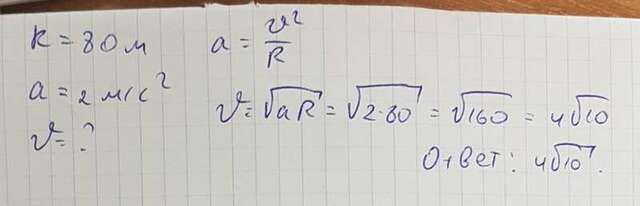 R = 80 м
a = 2 м/с²
υ = ?
a = υ²/R
υ = √aR = √2·80 = √160 = 4√10
Ответ: 4√10.